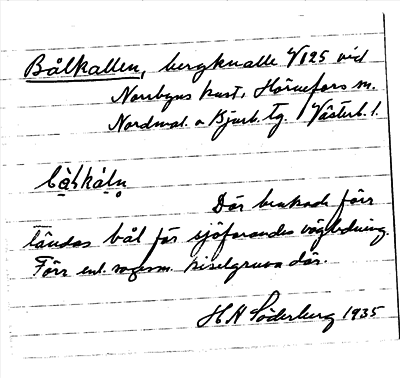 Bålkallen, bergknalle V 125 vid
Norrbyns kust, Hörnefors sn.
Nordmal. o Bjurh. tg. Västerb. l.
bå̀lkáln̥
Där brukade förr
tändas bål för sjöfarandes vägledning.
Förr enl. sägn. kiselgruva där.
H A Söderberg 1935